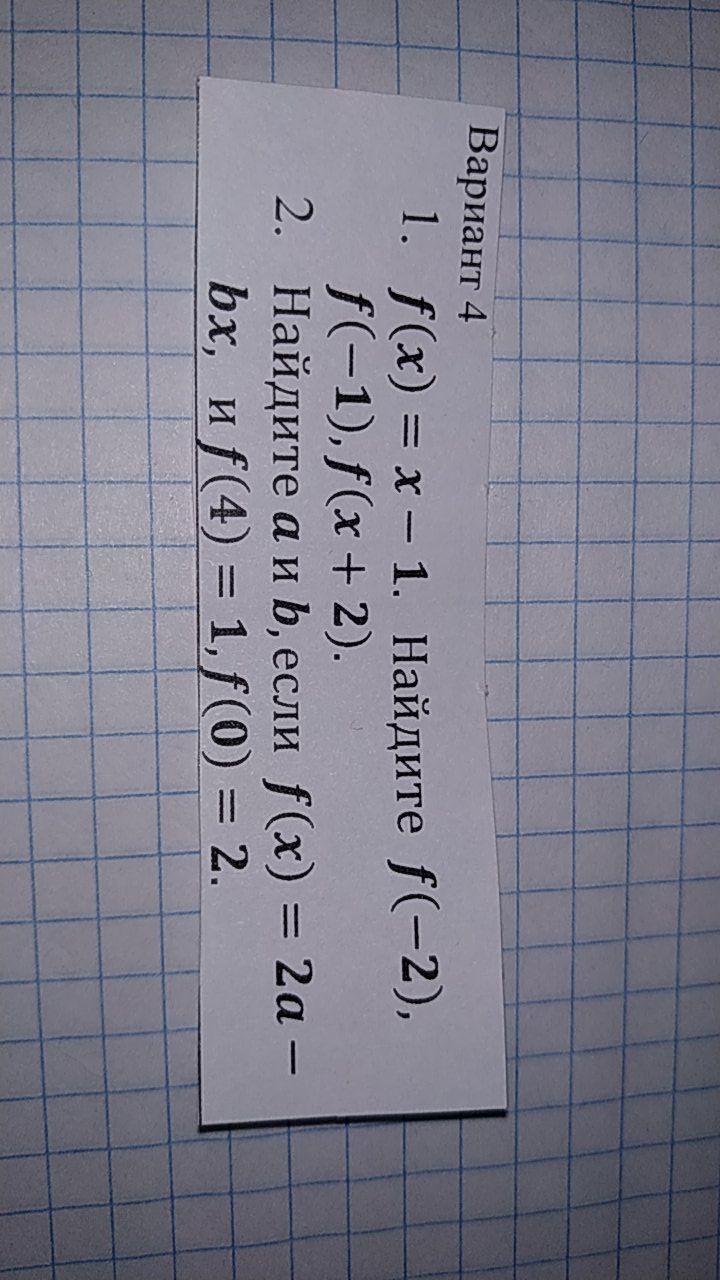 Вариант 4
1. f(x) = x − 1. Найдите f(−2),
f(−1), f(x + 2).
2. Найдите a и b, если f(x) = 2a −
bx, и f(4) = 1, f(0) = 2.